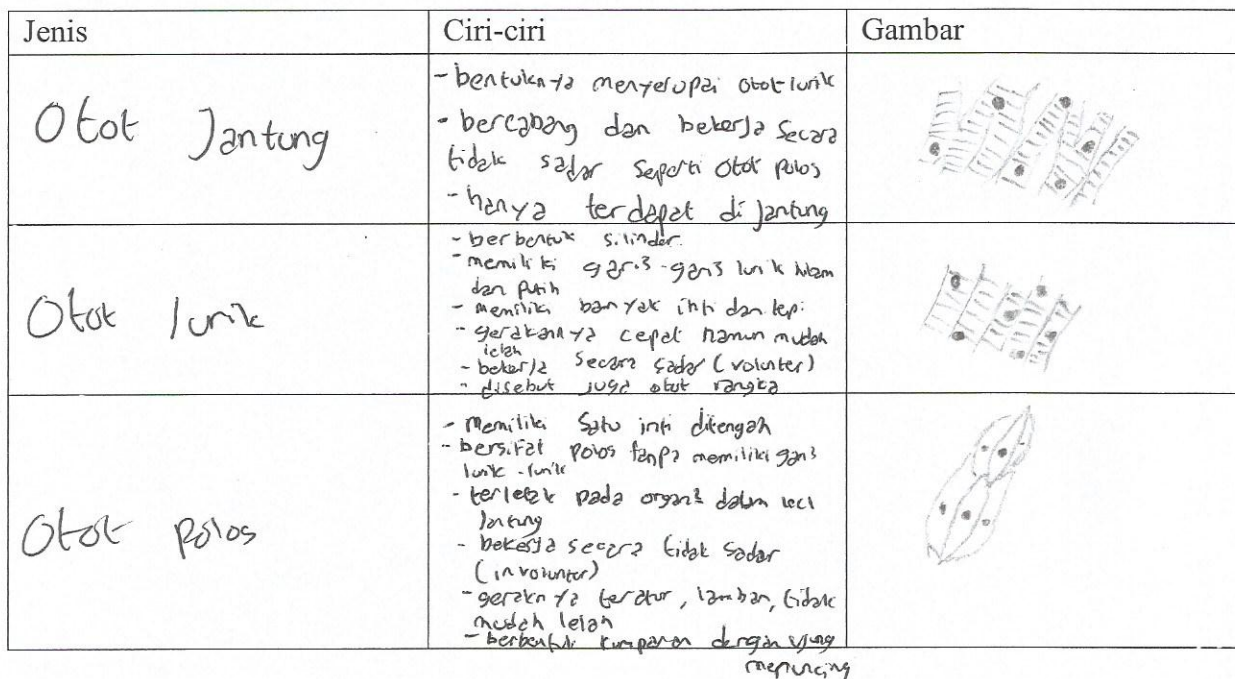 Jenis
Ciri-ciri
Gambar
Otot Jantung
- bentuknya menyerupai otot lurik
- bercabang dan bekerja secara
tidak sadar seperti otot polos
- hanya terdapat di jantung
Otot lurik
- berbentuk silinder
- memiliki garis-garis lurik hitam
dan putih
- memiliki banyak inti dan tepi
- gerakannya cepat namun mudah
lelah
- bekerja secara sadar (volunter)
- disebut juga otot rangka
Otot polos
- memiliki satu inti ditengah
- bersifat polos tanpa memiliki garis
lurik-lurik
- terletak pada organ2 dalam kecl
jantung
- bekerja secara tidak sadar
(involunter)
- geraknya teratur, lamban, tidak
mudah lelah
- berbentuk kumparan dengan ujung
meruncing